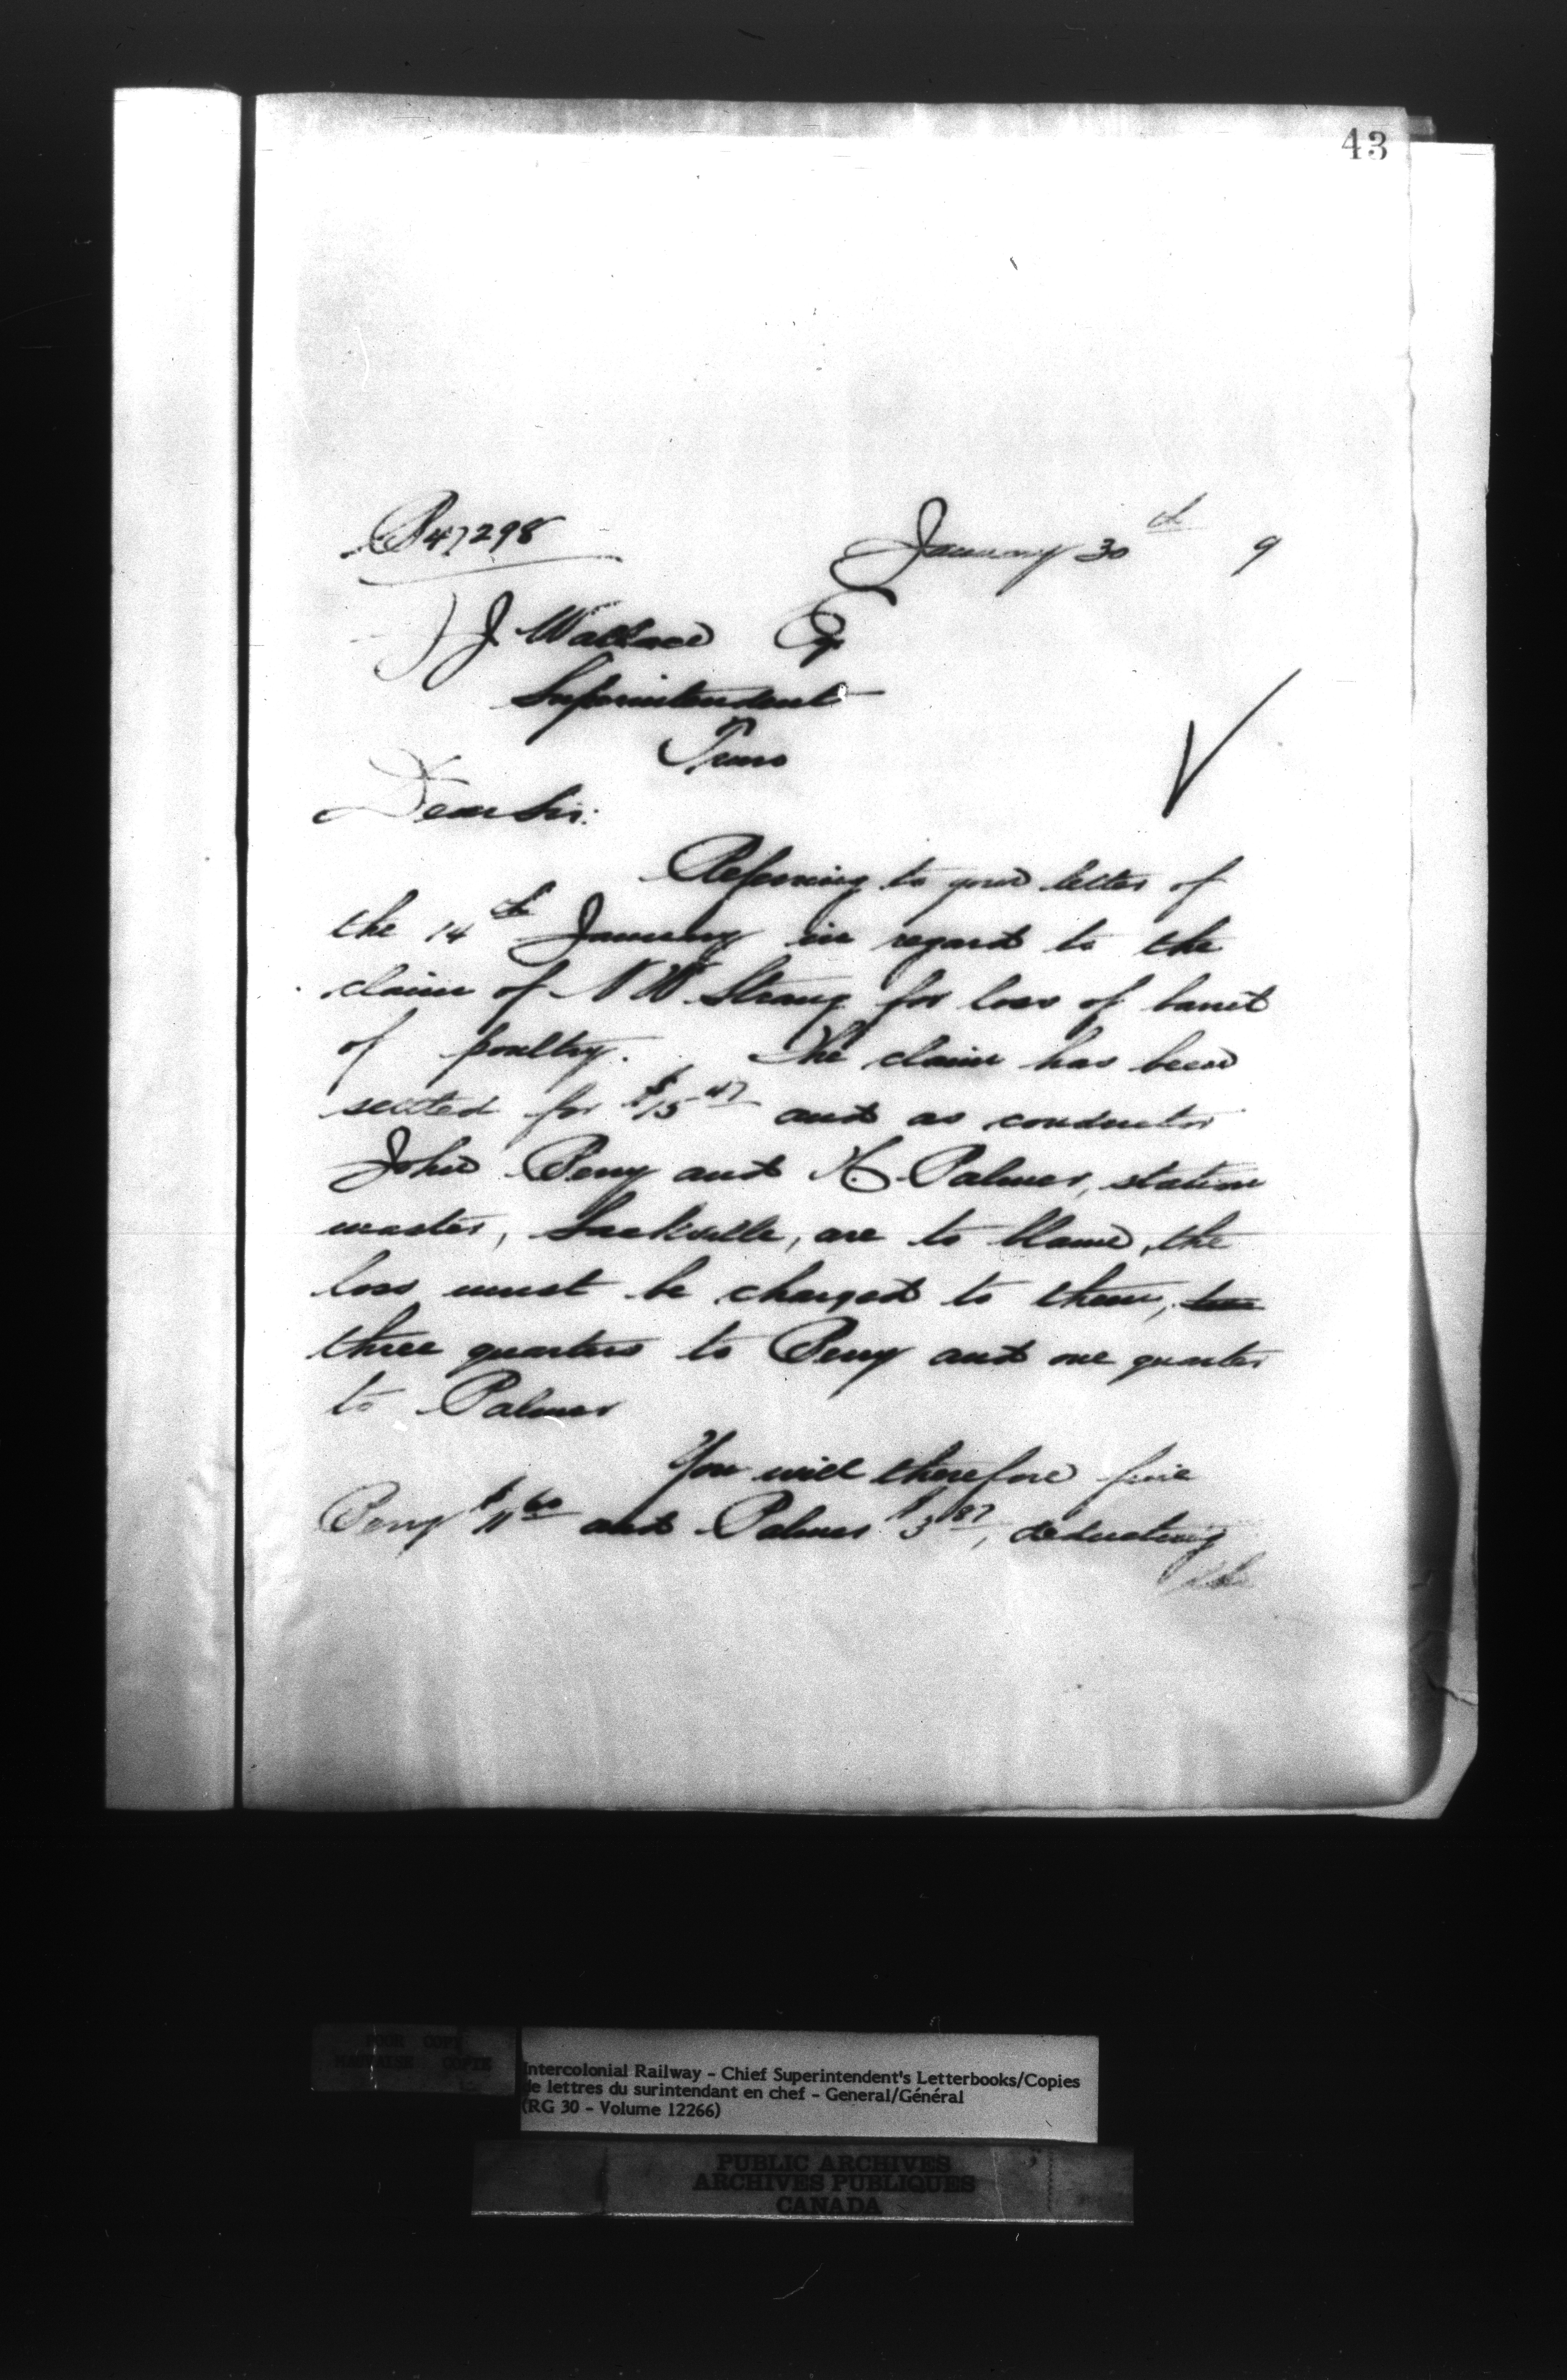 43
P 47298
January 30th 9
J. Wallace Esq
Superintendent
Truro
Dear Sir:
Referring to your letter of
the 14th January in regard to the
claim of N W Strang for loss of barrel
of poultry. The claim has been
settled for $15 47 and as conductor
John Perry and H. Palmer, station
master, Sackville, are to blame, the
loss must be charged to them,
three quarters to Perry and one quarter
to Palmer
You will therefore fine
Perry $11 60 and Palmer $3 87, deducting
POOR COPY
MAUVAISE COPIE
Intercolonial Railway - Chief Superintendent's Letterbooks/Copies
de lettres du surintendant en chef - General/Général
(RG 30 - Volume 12266)
PUBLIC ARCHIVES
ARCHIVES PUBLIQUES
CANADA